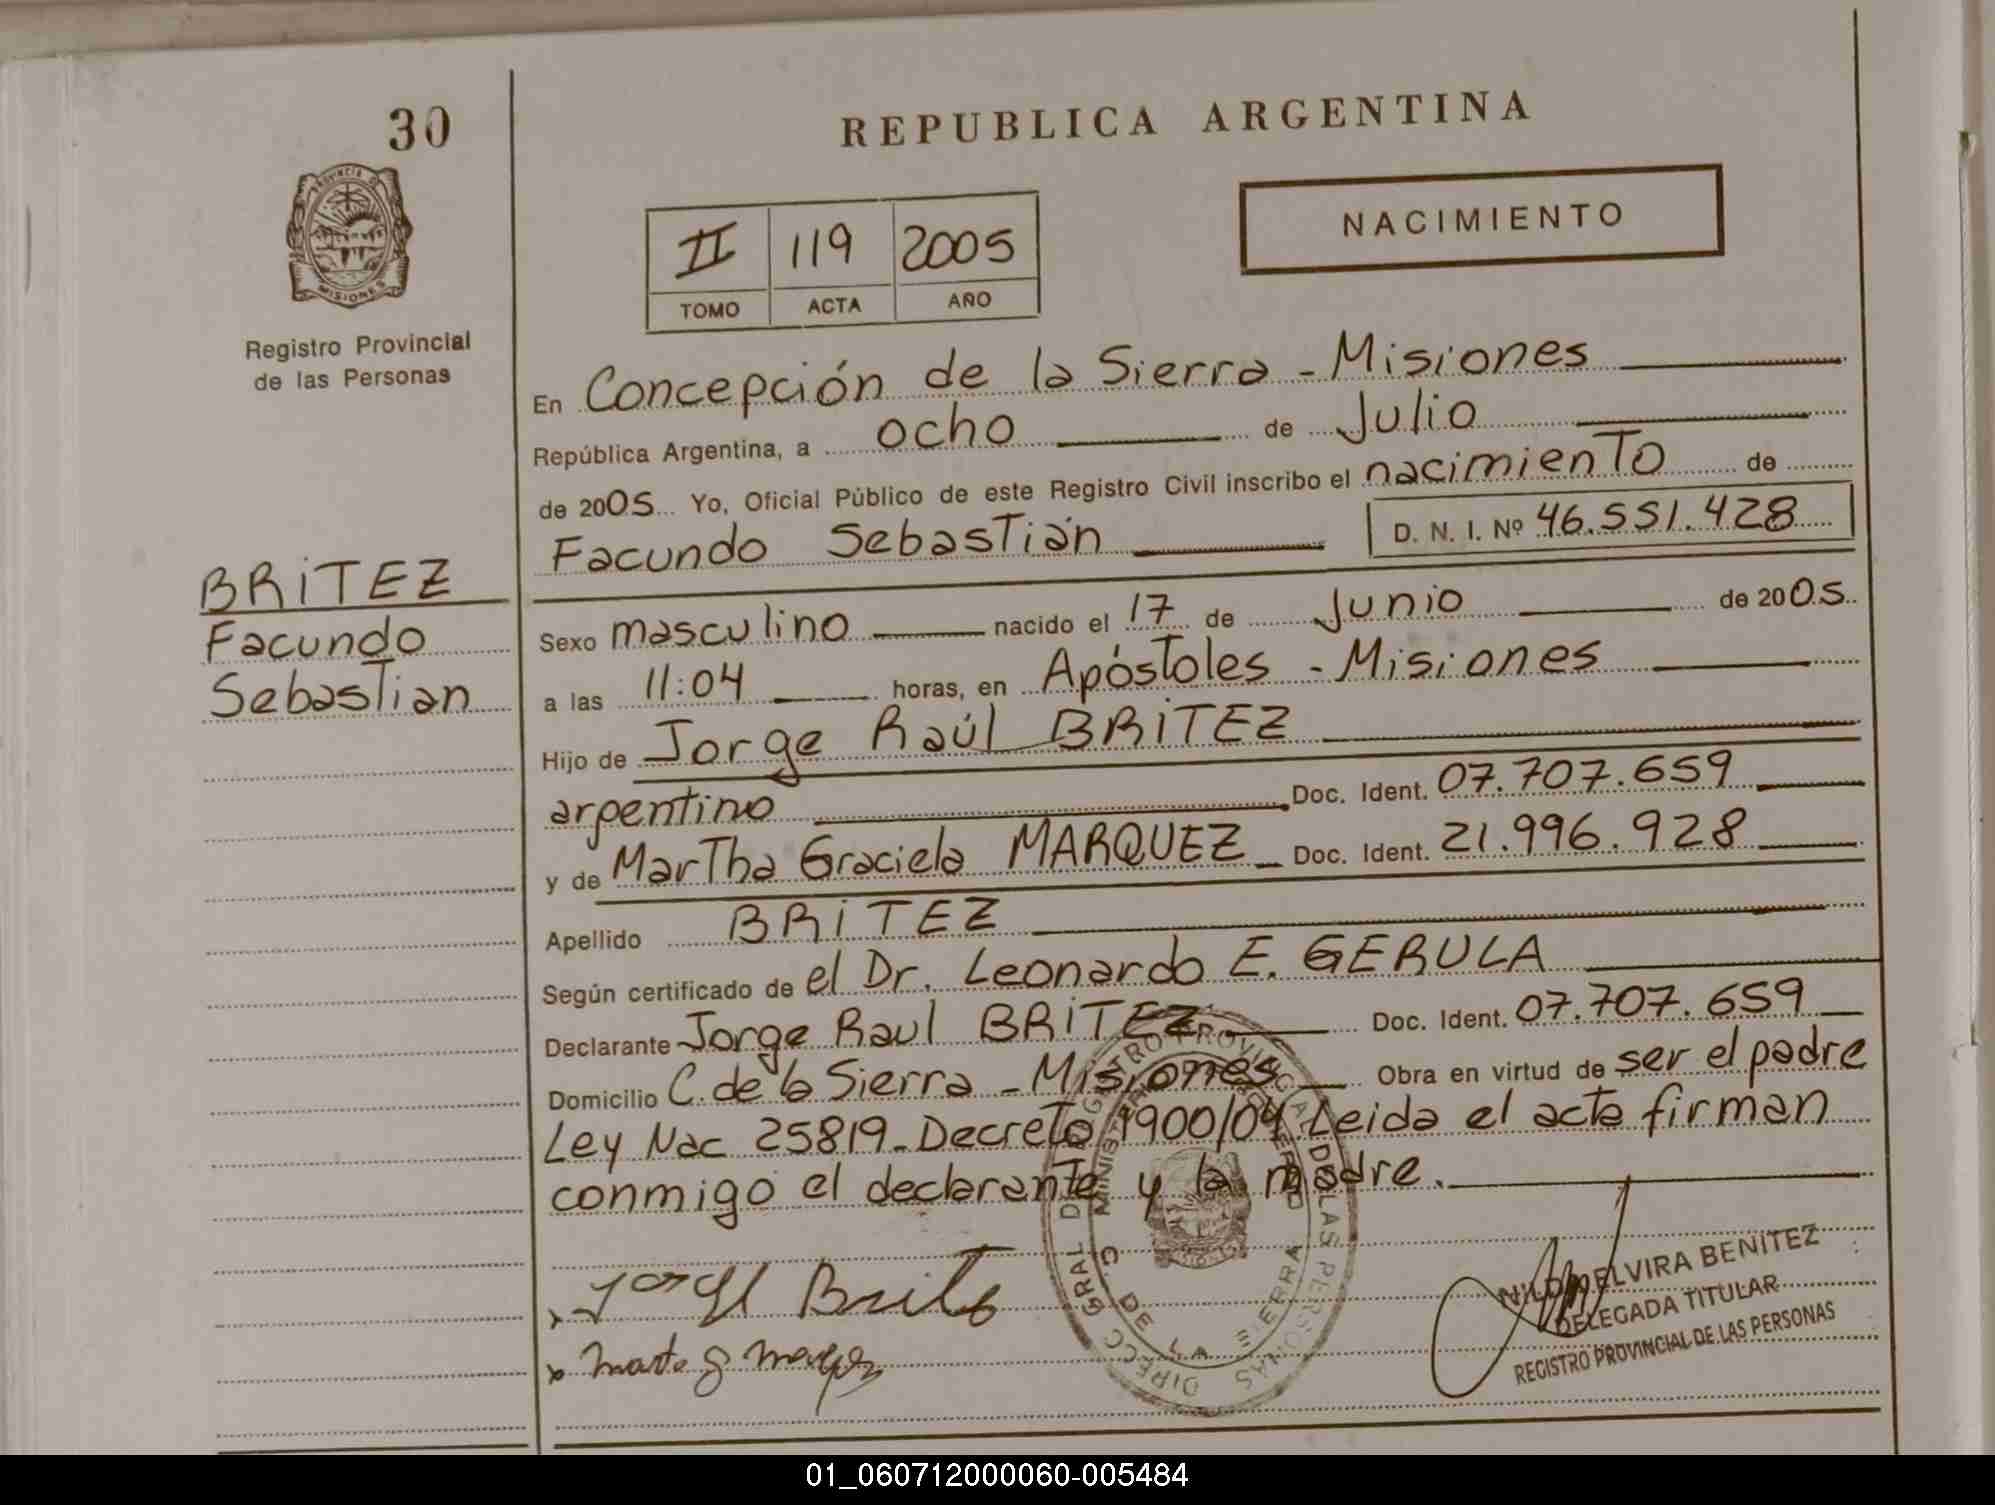 30
REPUBLICA ARGENTINA
PROVINCIA DE
MISIONES
Registro Provincial
de las Personas
II 119 2005
TOMO ACTA AÑO
NACIMIENTO
En Concepción de la Sierra - Misiones
República Argentina, a ocho de Julio
de 2005 Yo, Oficial Público de este Registro Civil inscribo el nacimiento de
Facundo Sebastián D. N. I. Nº 46.551.428
BRITEZ
Facundo
Sebastian
Sexo masculino nacido el 17 de Junio de 2005
a las 11:04 horas, en Apóstoles - Misiones
Hijo de Jorge Raúl BRITEZ
argentino Doc. Ident. 07.707.659
y de Martha Graciela MARQUEZ Doc. Ident. 21.996.928
Apellido BRITEZ
Según certificado de el Dr. Leonardo E. GERULA
Declarante Jorge Raul BRITEZ Doc. Ident. 07.707.659
Domicilio C. de la Sierra - Misiones Obra en virtud de ser el padre
Ley Nac 25819 - Decreto 1900/04. Leida el acta firman
conmigo el declarante y la madre.
DIRECC GRAL DEL REGISTRO PROVINCIAL DE LAS PERSONAS
C. DE LA SIERRA
ELVIRA BENITEZ
DELEGADA TITULAR
REGISTRO PROVINCIAL DE LAS PERSONAS
01_060712000060-005484